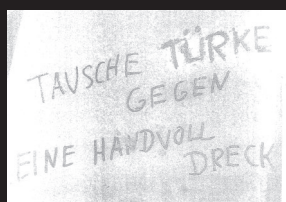 TAUSCHE TÜRKE
GEGEN
EINE HANDVOLL
DRECK